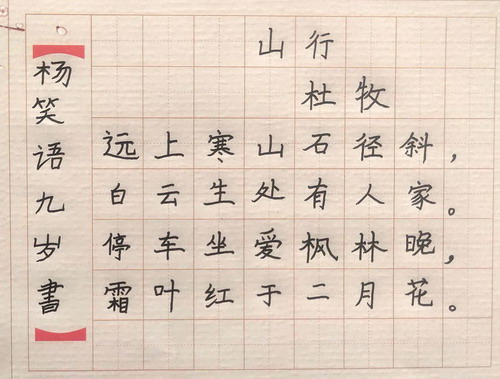 山行
杜牧
远上寒山石径斜，
白云生处有人家。
停车坐爱枫林晚，
霜叶红于二月花。
杨笑语九岁書